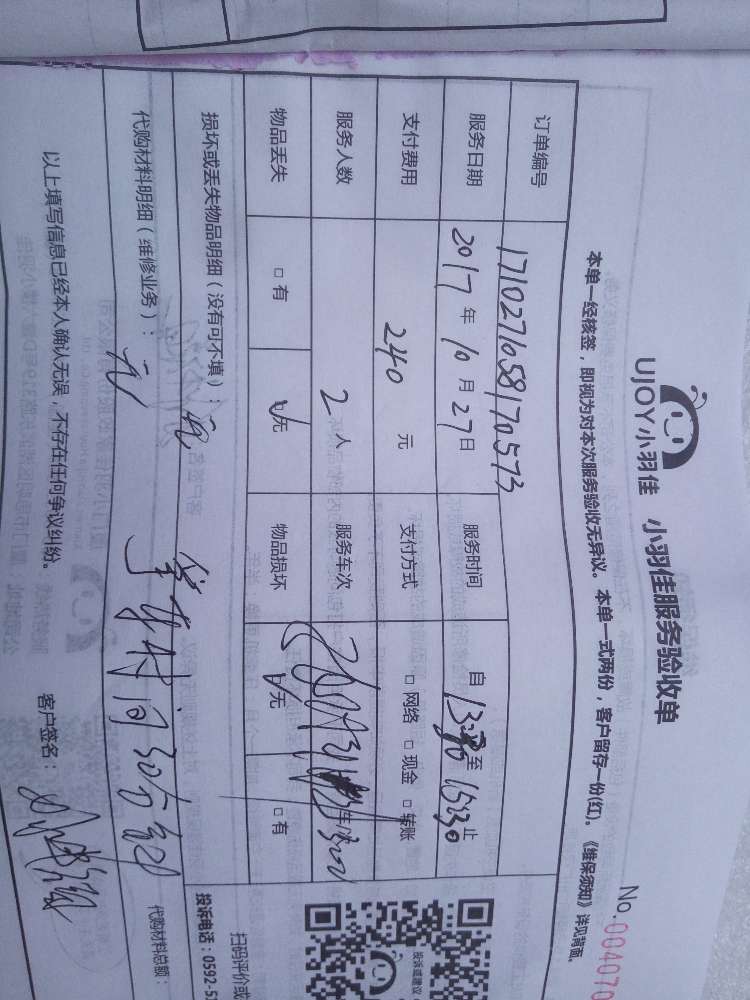 UJOY小羽佳 小羽佳服务验收单
No.004070
本单一经核签，即视为对本次服务验收无异议。本单一式两份，客户留存一份(红)。《维保须知》详见背面。
订单编号 171027105817 0573
服务日期 2017年10月27日 服务时间 自13:30至15:30止
支付费用 240元 支付方式 □网络 □现金 □转账
服务人数 2人 服务车次
物品丢失 □有 ☑无 物品损坏 ☑无 □有
损坏或丢失物品明细（没有可不填）：无
代购材料明细（维修业务）：无
等客时间30分钟
代购材料总额：
以上填写信息已经本人确认无误，不存在任何争议纠纷。 客户签名：
投诉或建议
扫码评价或
投诉电话：0592-5